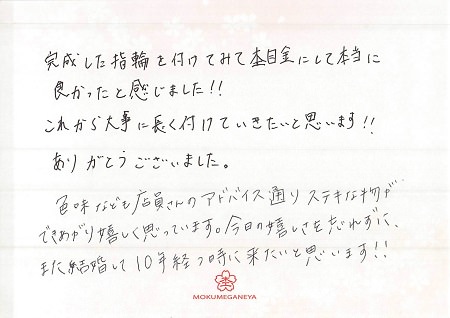 完成した指輪を付けてみて杢目金にして本当に
良かったと感じました!!
これから大事に長く付けていきたいと思います!!
ありがとうございました。
色味なども店員さんのアドバイス通りステキな物が
できあがり嬉しく思っています。今日の嬉しさを忘れずに、
また結婚して10年経つ時に来たいと思います!!
杢
MOKUMEGANEYA